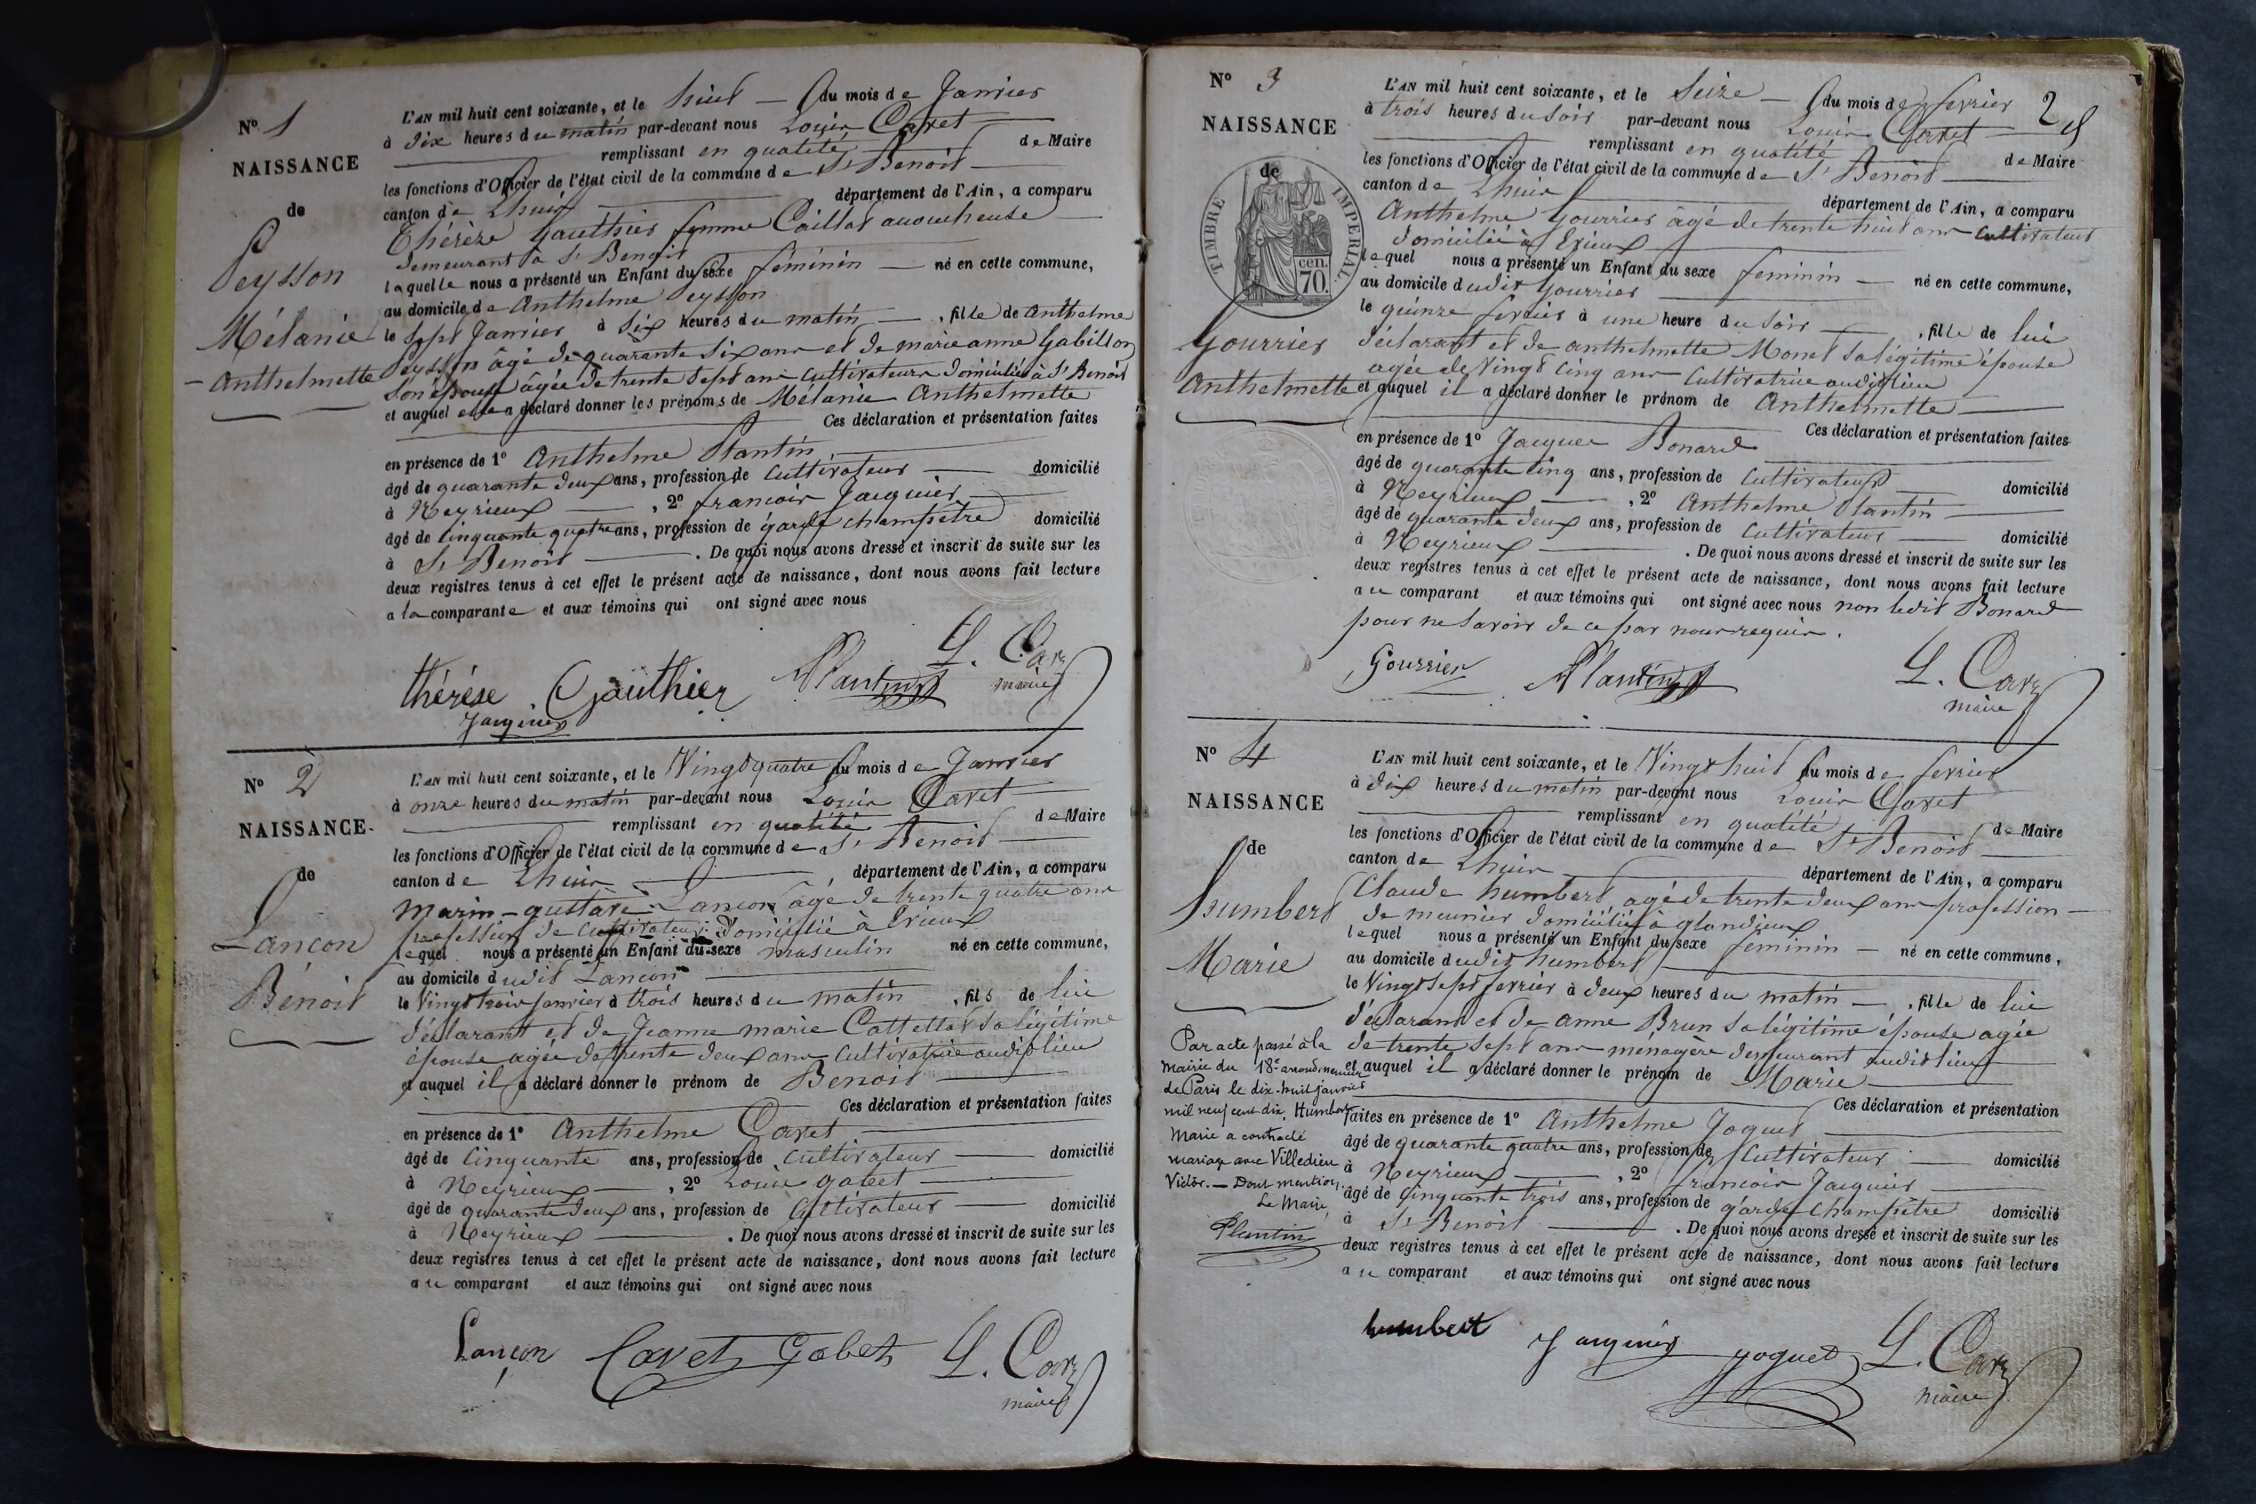 Nº 1
NAISSANCE
de
Peysson
Mélanie
Anthelmette
L'AN mil huit cent soixante, et le huit du mois de Janvier
à dix heures du matin par-devant nous Louis Cavet
remplissant en qualité de Maire
les fonctions d'Officier de l'état civil de la commune de St Benoit
canton de Lhuis département de l'Ain, a comparu
Thérèze Gauthier femme Caillat accoucheuse
demeurant à St Benoit
laquelle nous a présenté un Enfant du sexe féminin né en cette commune,
au domicile de Anthelme Peysson
le sept Janvier à six heures du matin, fille de Anthelme
Peysson âgé de quarante six ans et de marie anne Gabillon
son épouse âgée de trente sept ans cultivateurs domiciliés à St Benoit
et auquel elle a déclaré donner les prénoms de Mélanie Anthelmette
Ces déclaration et présentation faites
en présence de 1º Anthelme Plantin
âgé de quarante deux ans, profession de cultivateur domicilié
à Neyrieux, 2º francois Jacquier
âgé de cinquante quatre ans, profession de garde champêtre domicilié
à St Benoit. De quoi nous avons dressé et inscrit de suite sur les
deux registres tenus à cet effet le présent acte de naissance, dont nous avons fait lecture
a la comparante et aux témoins qui ont signé avec nous
thérése Gauthier Plantin L. Cavet
Jacquier maire
Nº 2
NAISSANCE
de
Lancon
Bénoit
L'AN mil huit cent soixante, et le Vingt quatre du mois de Janvier
à onze heures du matin par-devant nous Louis Cavet
remplissant en qualité de Maire
les fonctions d'Officier de l'état civil de la commune de St Benoit
canton de Lhuis département de l'Ain, a comparu
Marin-gustave Lancon âgé de trente quatre ans
profession de cultivateur domicilié à Evieux
lequel nous a présenté un Enfant du sexe masculin né en cette commune,
au domicile dudit Lancon
le Vingt trois janvier à trois heures du matin, fils de lui
déclarant et de Jeanne marie Cottettat sa légitime
épouse agée de trente deux ans cultivatrice audit lieu
et auquel il a déclaré donner le prénom de Benoit
Ces déclaration et présentation faites
en présence de 1º Anthelme Cavet
âgé de cinquante ans, profession de cultivateur domicilié
à Neyrieux, 2º Louis gabet
âgé de quarante deux ans, profession de cultivateur domicilié
à Neyrieux. De quoi nous avons dressé et inscrit de suite sur les
deux registres tenus à cet effet le présent acte de naissance, dont nous avons fait lecture
au comparant et aux témoins qui ont signé avec nous
Lançon Cavet Gabet L. Cavet
maire
2
Nº 3
NAISSANCE
de
TIMBRE IMPERIAL
70 cen.
Gourrier
Anthelmette
L'AN mil huit cent soixante, et le Seize du mois de fevrier
à trois heures du soir par-devant nous Louis Cavet
remplissant en qualité de Maire
les fonctions d'Officier de l'état civil de la commune de St Benoit
canton de Lhuis département de l'Ain, a comparu
Anthelme Gourrier âgé de trente huit ans cultivateur
domicilié à Evieux
lequel nous a présenté un Enfant du sexe feminin né en cette commune,
au domicile dudit Gourrier
le quinze fevrier à une heure du soir, fille de lui
déclarant et de anthelmette Monet sa légitime épouse
agée de Vingt cinq ans cultivatrice audit lieu
et auquel il a déclaré donner le prénom de Anthelmette
Ces déclaration et présentation faites
en présence de 1º Jacques Bonard
âgé de quarante cinq ans, profession de cultivateur domicilié
à Neyrieux, 2º Anthelme Plantin
âgé de quarante deux ans, profession de cultivateur domicilié
à Neyrieux. De quoi nous avons dressé et inscrit de suite sur les
deux registres tenus à cet effet le présent acte de naissance, dont nous avons fait lecture
au comparant et aux témoins qui ont signé avec nous non ledit Bonard
pour ne savoir de ce par nous requis.
Gourrier Plantin L. Cavet
maire
Nº 4
NAISSANCE
de
humbert
Marie
Par acte passé à la
mairie du 18e arrondissement
de Paris le dix-huit janvier
mil neuf cent dix, Humbert
Marie a contracté
mariage avec Villedieu
Victor. — Dont mention.
Le Maire,
Plantin
L'AN mil huit cent soixante, et le Vingt huit du mois de fevrier
à dix heures du matin par-devant nous Louis Cavet
remplissant en qualité de Maire
les fonctions d'Officier de l'état civil de la commune de St Benoit
canton de Lhuis département de l'Ain, a comparu
Claude humbert agé de trente deux ans profession
de meunier domicilié à glandieux
lequel nous a présenté un Enfant du sexe feminin né en cette commune,
au domicile dudit humbert
le Vingt sept fevrier à deux heures du matin, fille de lui
déclarant et de anne Brun sa légitime épouse agée
de trente sept ans ménagère demeurant audit lieu
et auquel il a déclaré donner le prénom de Marie
Ces déclaration et présentation
faites en présence de 1º Anthelme Joguet
âgé de quarante quatre ans, profession de cultivateur domicilié
à Neyrieux, 2º francois Jacquier
âgé de cinquante trois ans, profession de garde champêtre domicilié
à St Benoit. De quoi nous avons dressé et inscrit de suite sur les
deux registres tenus à cet effet le présent acte de naissance, dont nous avons fait lecture
au comparant et aux témoins qui ont signé avec nous
humbert Jacquier Joguet L. Cavet
maire